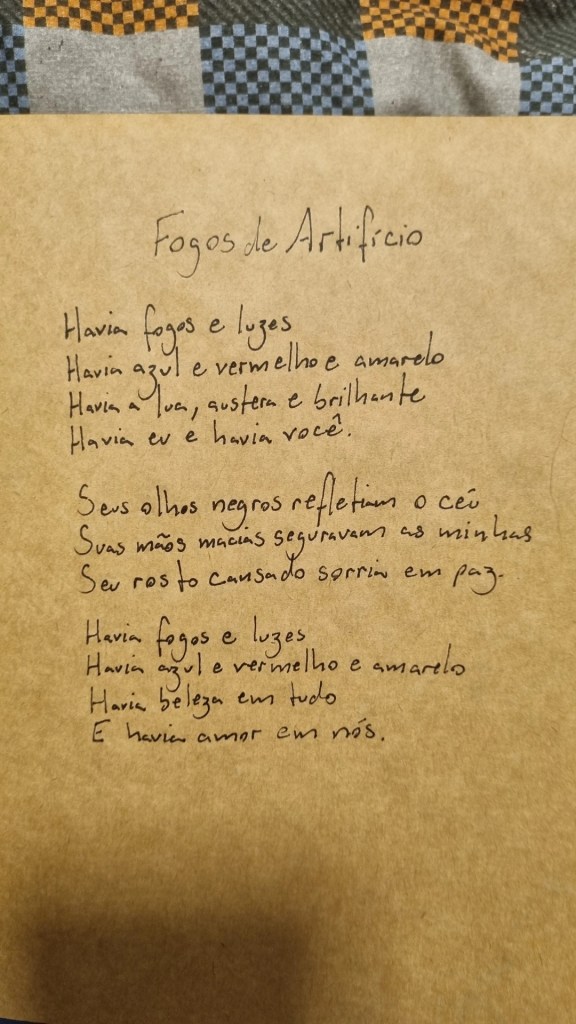 Fogos de Artifício
Havia fogos e luzes
Havia azul e vermelho e amarelo
Havia a lua, austera e brilhante
Havia eu e havia você.
Seus olhos negros refletiam o céu
Suas mãos macias seguravam as minhas
Seu rosto cansado sorria em paz.
Havia fogos e luzes
Havia azul e vermelho e amarelo
Havia beleza em tudo
E havia amor em nós.